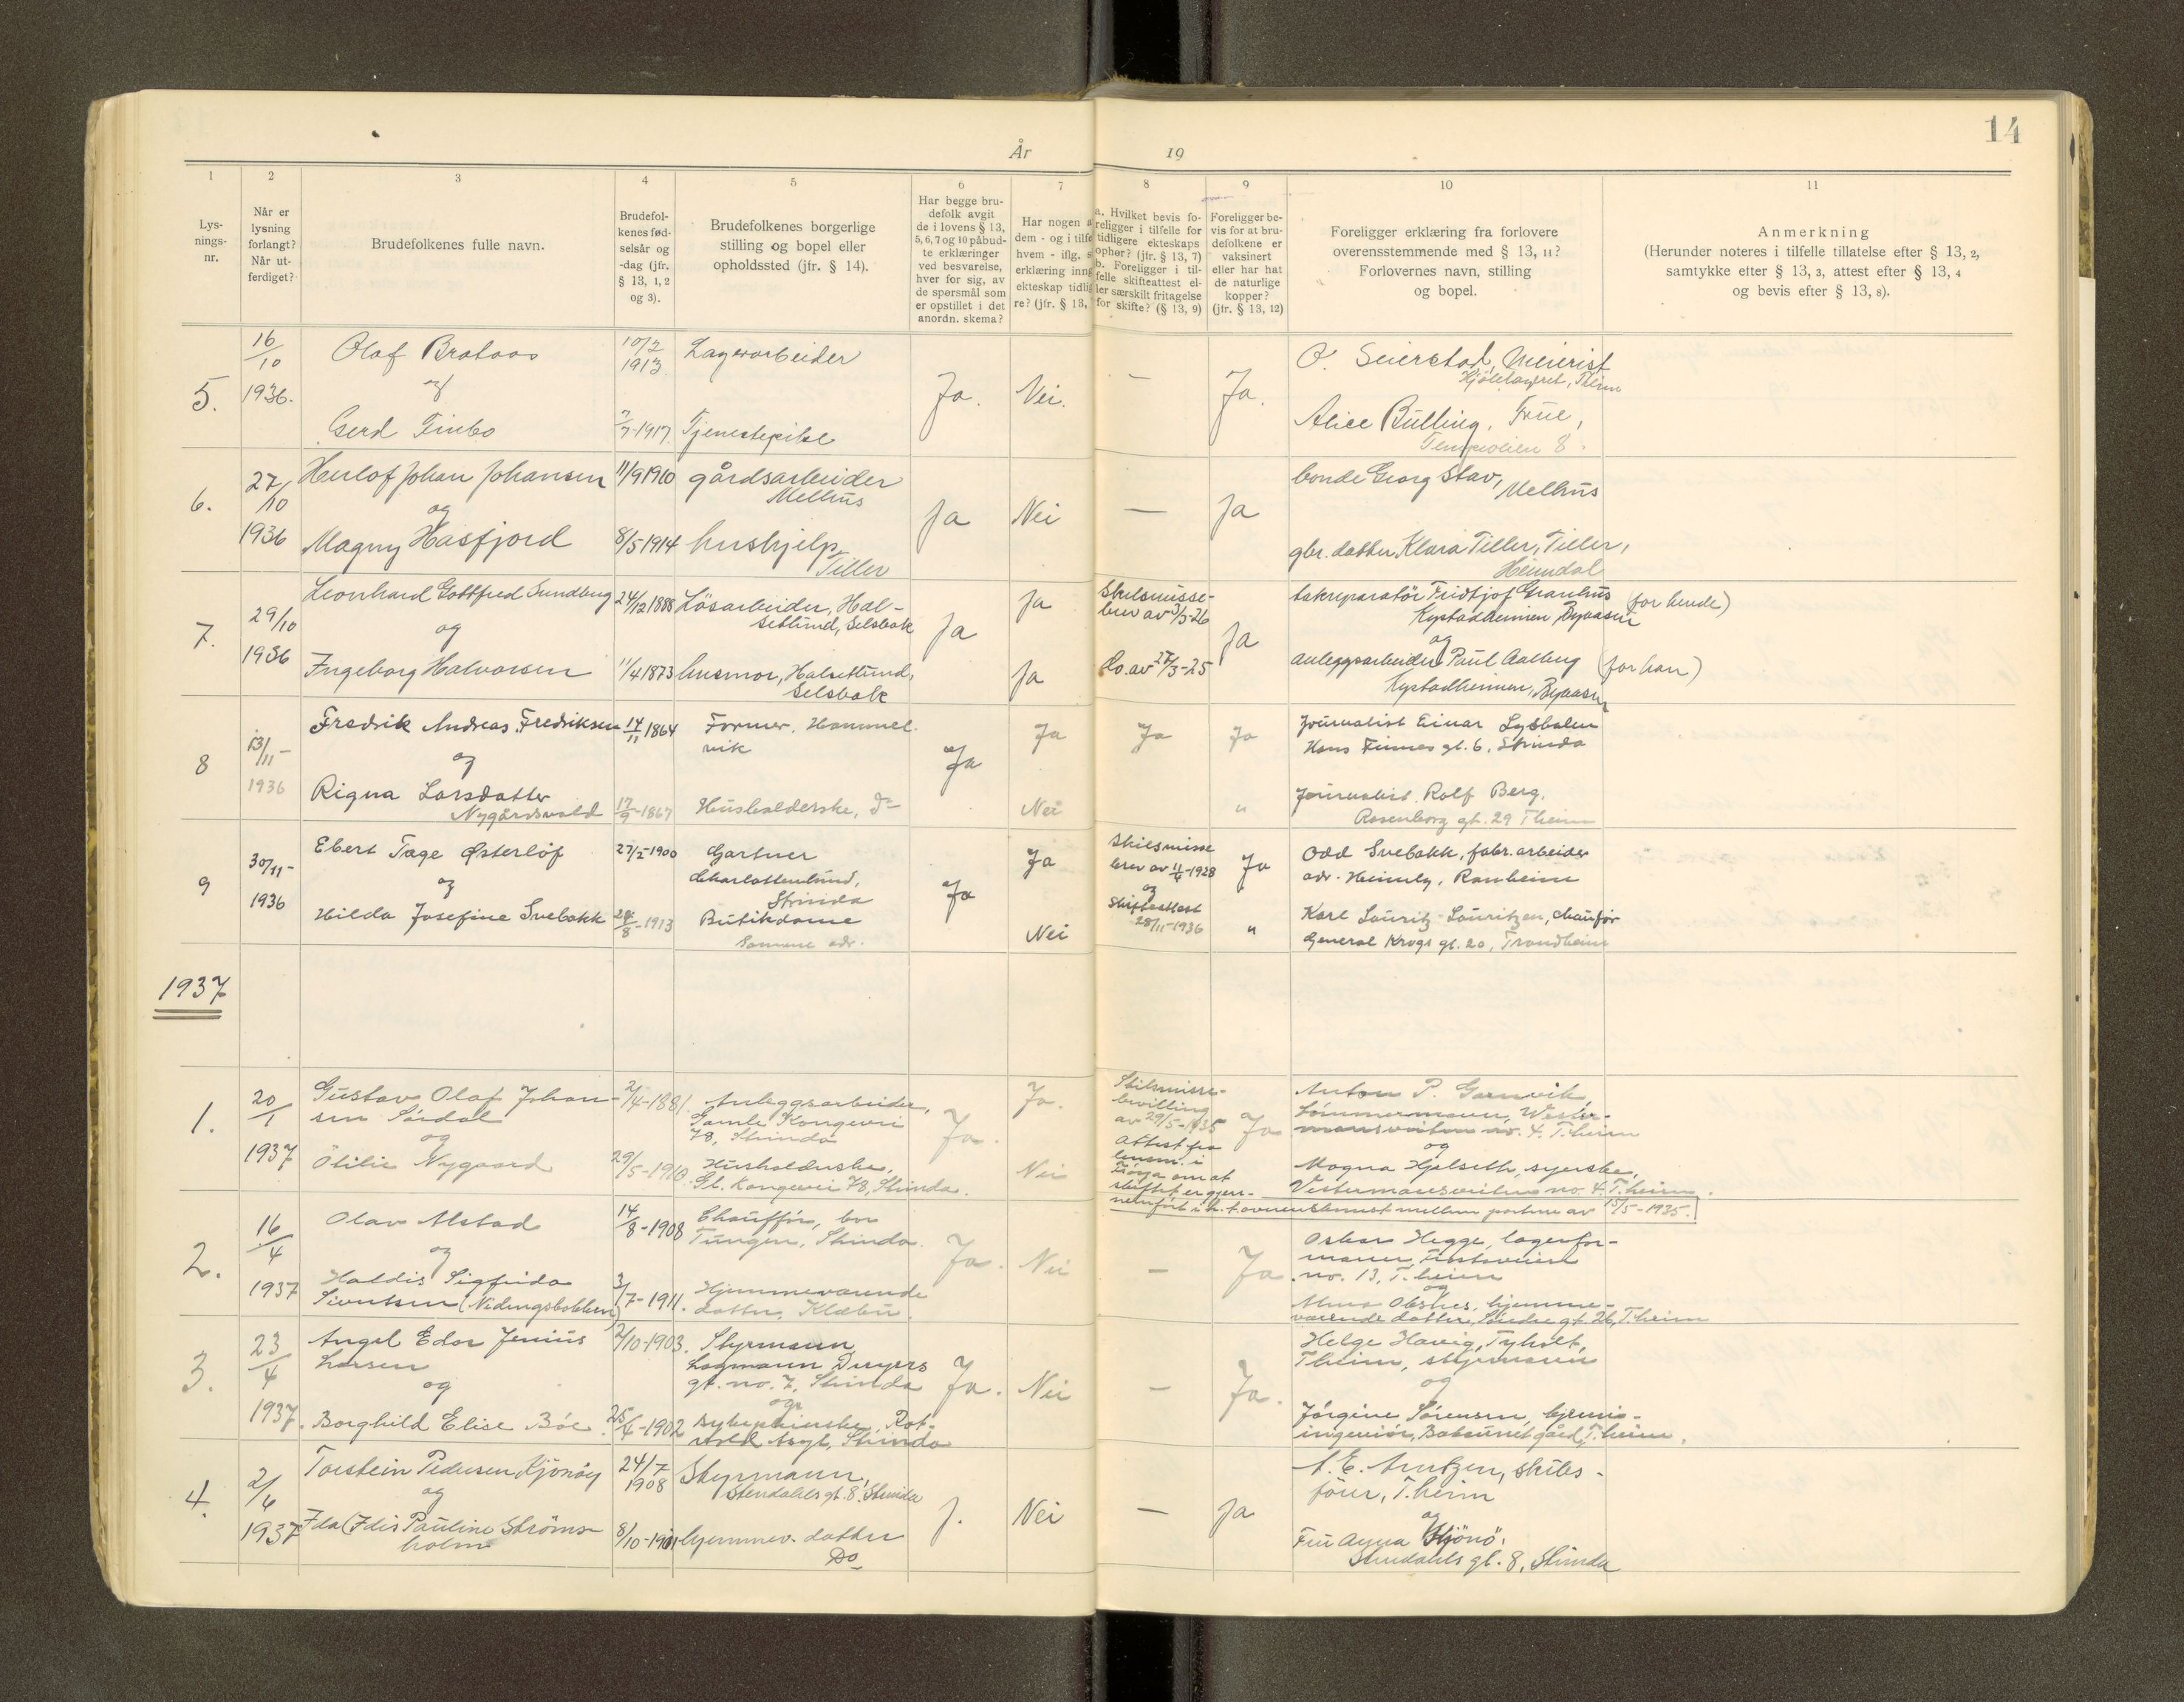 14
År 19
1 2 3 4 5 6 7 8 9 10 11
Lys-
nings-
nr.
Når er
lysning
forlangt?
Når ut-
ferdiget?
Brudefolkenes fulle navn.
Brudefol-
kenes fød-
selsår og
-dag (jfr.
§ 13, 1, 2
og 3).
Brudefolkenes borgerlige
stilling og bopel eller
opholdssted (jfr. § 14).
Har begge bru-
defolk avgit
de i lovens § 13,
5, 6, 7 og 10 påbud-
te erklæringer
ved besvarelse,
hver for sig, av
de spørsmål som
er opstillet i det
anordn. skema?
Har nogen a
dem - og i tilfe
hvem - iflg. s
erklæring inng
ekteskap tidlig
re? (jfr. § 13,
a. Hvilket bevis fo-
religger i tilfelle for
tidligere ekteskaps
ophør? (jfr. § 13, 7)
b. Foreligger i til-
felle skifteattest el-
ler særskilt fritagelse
for skifte? (§ 13, 9)
Foreligger be-
vis for at bru-
defolkene er
vaksinert
eller har hat
de naturlige
kopper?
(jfr. § 13, 12)
Foreligger erklæring fra forlovere
overensstemmende med § 13, 11?
Forlovernes navn, stilling
og bopel.
Anmerkning
(Herunder noteres i tilfelle tillatelse efter § 13, 2,
samtykke efter § 13, 3, attest efter § 13, 4
og bevis efter § 13, 8).
5.
16/10
1936.
Olaf Brataas
og
Gerd Finbo
10/2
1913
7/7-1917.
Lagerarbeider
Tjenestepike
Ja.
Nei.
—
Ja.
O. Seierstad, Meierist
Kjølelageret, Th.eim
Alice Bulling, Frue,
Tempeveien 8.
6.
27/10
1936
Herlof Johan Johansen
og
Magny Hasfjord
11/9 1910
8/5 1914
gårdsarbeider
Melhus
hushjelp
Tiller
Ja
Nei
—
Ja
bonde Georg Stav,
Melhus
gbr. datter Klara Tiller, Tiller,
Heimdal
7.
29/10
1936
Leonhard Gottfred Sundberg
og
Ingeborg Halvorsen
24/12 1888
11/4 1873
Løsarbeider, Hal-
setlund, Selsbak
husmor, Halsetlund,
Selsbak
Ja
Ja
Ja
Skilsmisse-
brev av 3/3-26
do. av 27/3-25
Ja
takreparatør Fridtjof Granhus (for hende)
Kystadheimen, Byaasen
og
anleggsarbeider Paul Aalberg (for han)
Kystadheimen, Byaasen
8
13/11-
1936
Fredrik Andreas Fredriksen
og
Rigna Larsdatter
Nygårdsvold
14/11 1864
17/9-1867
Former. Hommel-
vik
Husholderske, do
Ja
Ja
Nei
Ja
Ja
"
Journalist Einar Lysholm
Hans Finnes gt. 6, Strinda
Journalist Rolf Berg,
Rosenborg gt. 29 T.heim
9
30/11-
1936
Ebert Tage Østerløf
og
Hilda Josefine Svebakk
27/2-1900
24/8-1913
Gartner
Charlottenlund,
Strinda
Butikdame
Samme adr.
Ja
Ja
Nei
Skilsmisse
brev av 11/4-1928
og
Skifteattest
28/11-1936
Ja
"
Odd Svebakk, fabr. arbeider
adr. Heimly, Ranheim
Karl Lauritz Lauritzen, chaufør
General Krogs gt. 20, Trondheim
1937
1.
20/1
1937
Gustav Olaf Johan-
sen Sørdal
og
Otilie Nygaard
2/4-1881.
29/5-1910
Anleggsarbeider,
Gamle Kongevei
78, Strinda
Husholderske,
Gl. Kongevei 78, Strinda.
Ja.
Ja.
Nei
Skilsmisse-
bevilling
av 29/5-1935
Attest fra
lensm. i
om at
skiftet er gjen-
nemført i h. t. overenskomst mellem partene av 15/5-1935.
Ja
Anton P. Garnvik,
tømmermann, Wester-
mansveiten no. 4. T.heim
og
Magna Hjelseth, syerske,
Vestermansveiten no. 4. T.heim.
2.
16/4
1937
Olav Alstad
og
Haldis Sigfrida
Sivertsen (Nidengsbakken)
14/8-1908
3/7-1911.
Chauffør, bor
Tungen, Strinda.
Hjemmeværende
datter, Klæbu.
Ja.
Nei
—
Ja.
Oskar Hegge, lagerfor-
mann,
no. 13, T.heim
og
hjemme-
værende datter, Søndre gt. 26, T.heim
3.
23/4
1937.
Angel Edor Jenius
Larsen
og
Borghild Elise Bøe.
2/10-1903.
25/4-1902
Styrmann,
Lagmann Dreyers
gt. no. 7, Strinda
og
sykepleierske, Rot-
voll Asyl, Strinda
Ja.
Nei
—
Ja.
Helge Havig, Tyholt,
T.heim, styrmann
og
Jørgine Sørensen, kjemi-
ingeniør, gård, T.heim.
4.
2/6
1937
Torstein Pedersen Kjønøy
og
Ida (Idis Pauline Strøms-
holm
24/7
1908
8/10-1911
Styrmann,
Stendahls gt. 8, Strinda
hjemmev. datter
Do
J.
Nei
—
Ja
A. E. Arntzen, skibs-
fører, T.heim
og
Fru Anna Kjønø,
Stendahls gt. 8, Strinda